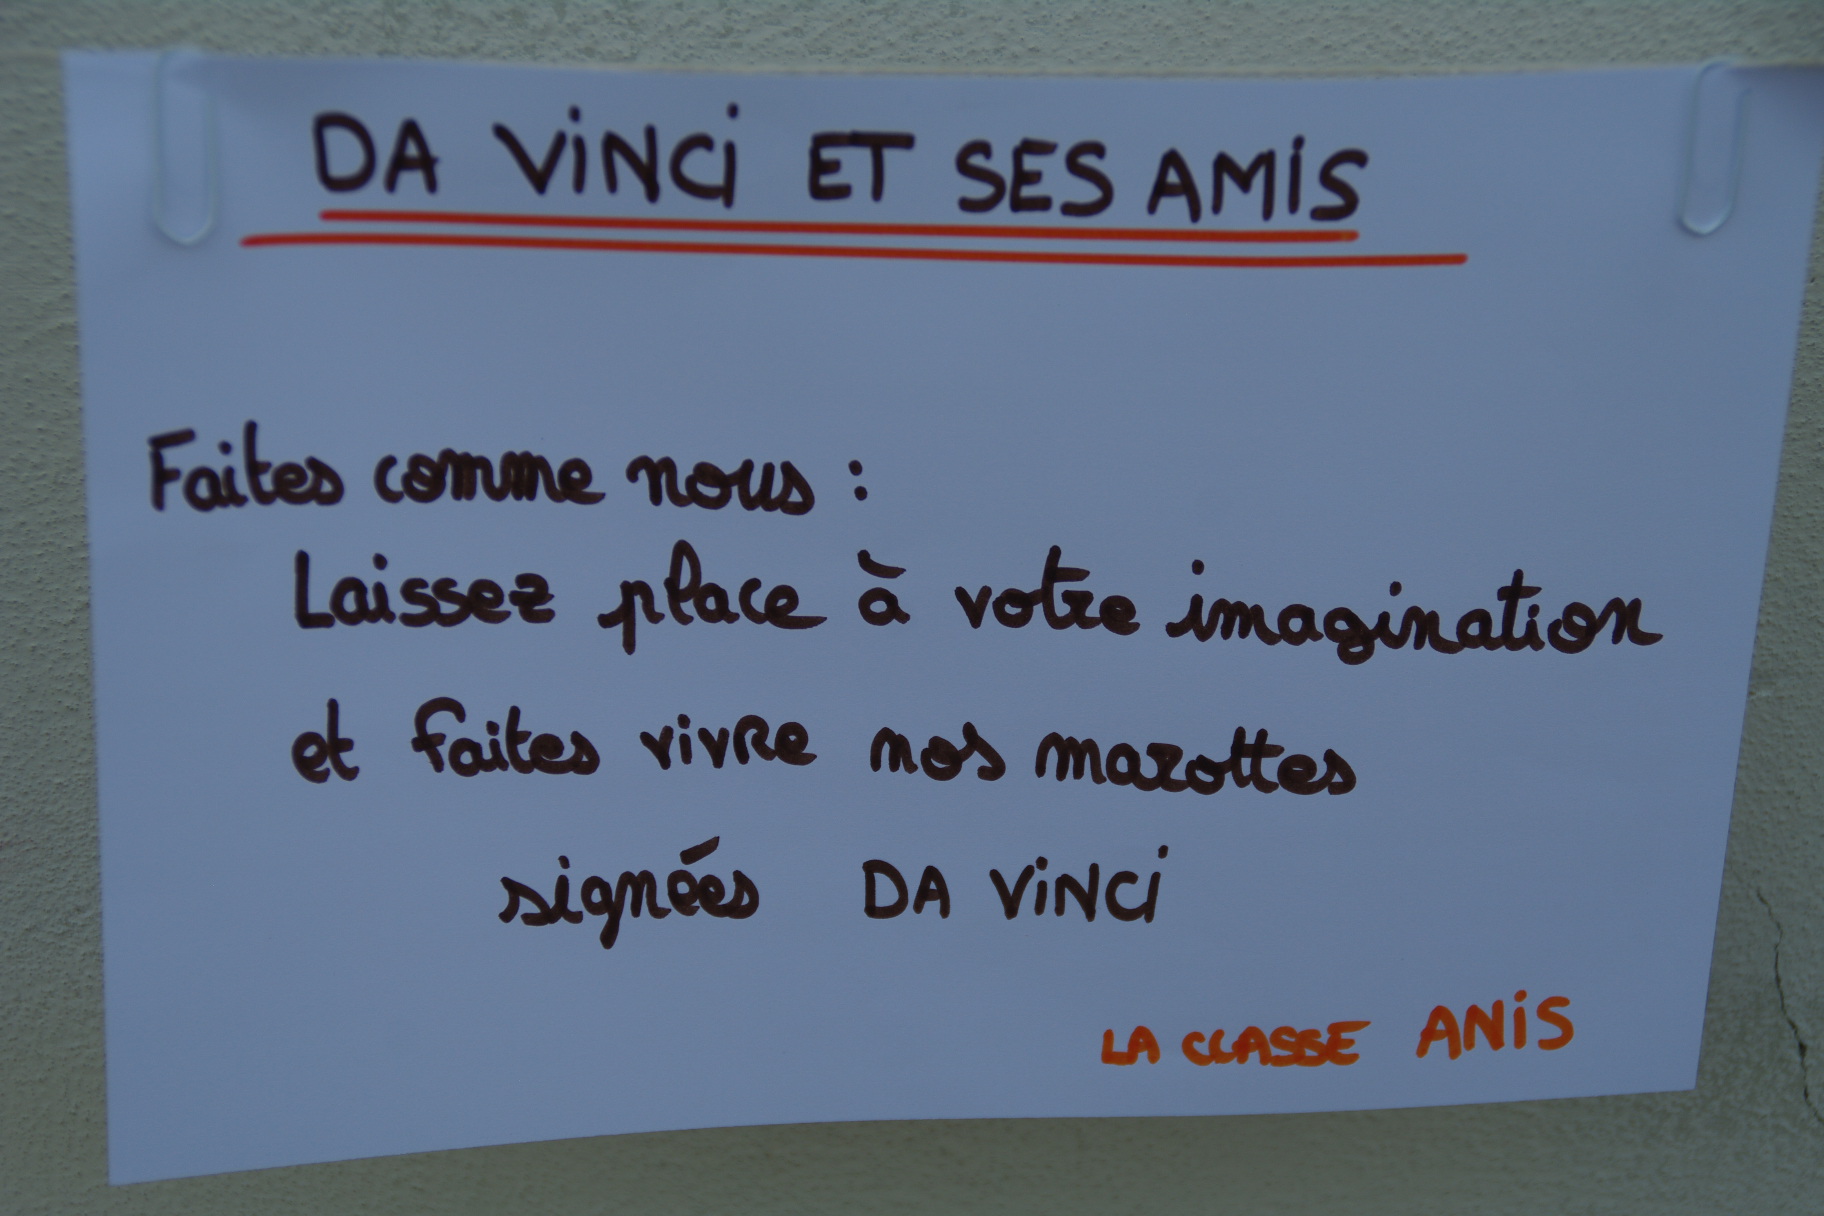 DA ViNCi ET SES AMiS
Faites comme nous :
Laissez place à votre imagination
et faites vivre nos marottes
signées DA ViNCi
LA CLASSE ANiS